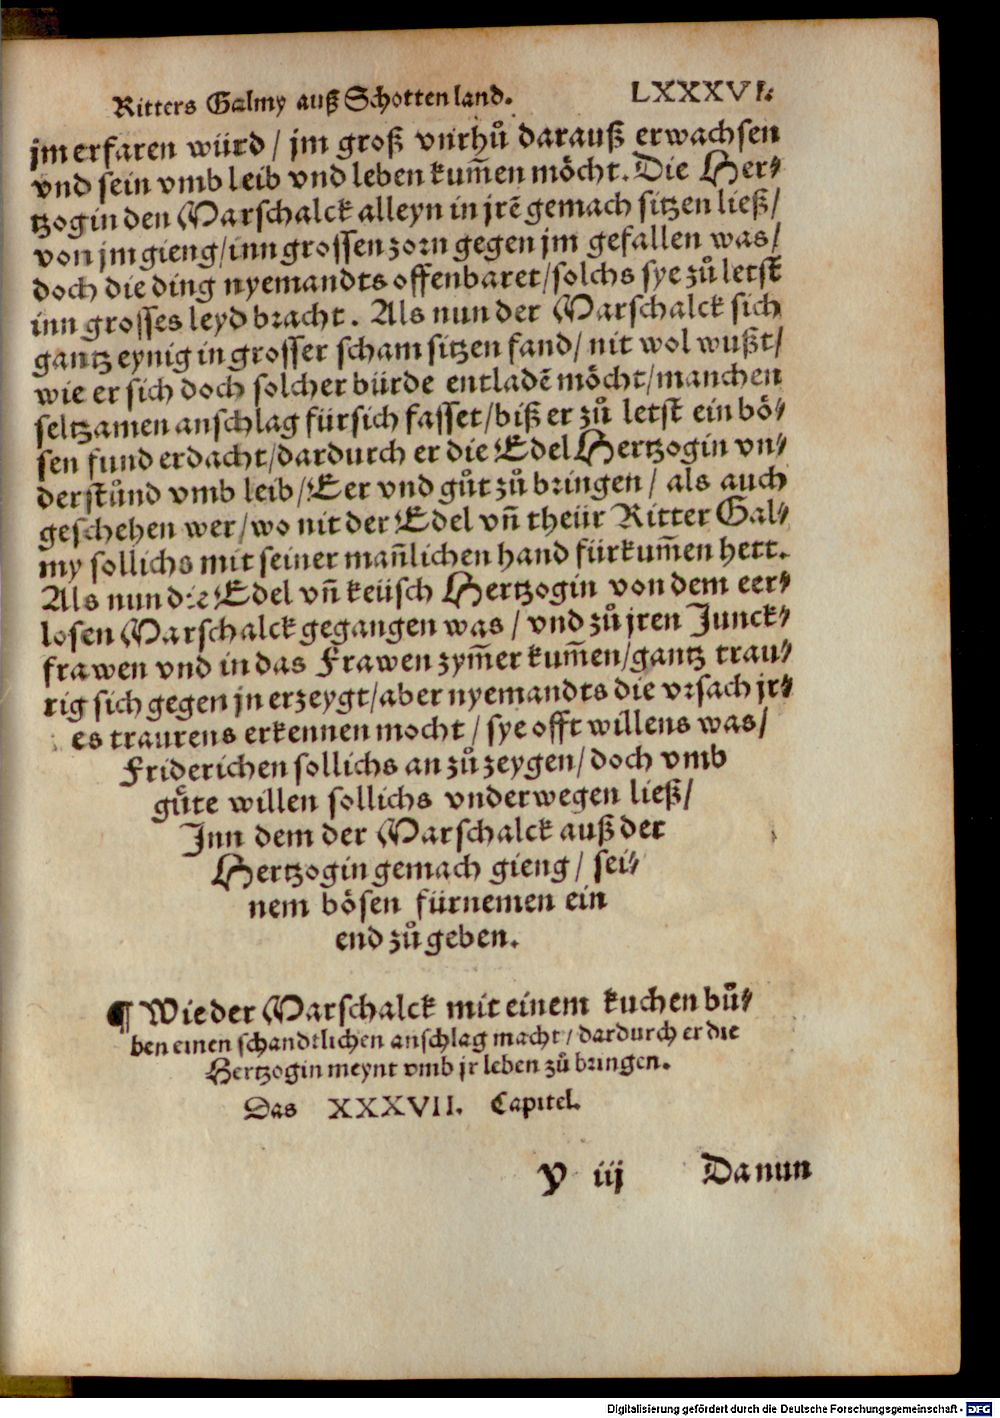 Ritters Galmy auß Schotten land. LXXXVI.
jm erfaren würd / jm groß vnrhuͦ darauß erwachsen
vnd sein vmb leib vnd leben kum̃en moͤcht. Die Her⸗
tzogin den Marschalck alleyn in jrẽ gemach sitzen ließ /
von jm gieng / inn grossen zorn gegen jm gefallen was /
doch die ding nyemandts offenbaret / solchs sye zuͦ letst
inn grosses leyd bracht. Als nun der Marschalck sich
gantz eynig in grosser scham sitzen fand / nit wol wußt /
wie er sich doch solcher bürde entladẽ moͤcht / manchen
seltzamen anschlag für sich fasset / biß er zuͦ letst ein boͤ⸗
sen fund erdacht / dardurch er die Edel Hertzogin vn⸗
derstuͦnd vmb leib / Eer vnd guͦt zuͦ bringen / als auch
geschehen wer / wo nit der Edel vñ theür Ritter Gal⸗
my sollichs mit seiner mañlichen hand fürkum̃en hett.
Als nun die Edel vñ keüsch Hertzogin von dem eer⸗
losen Marschalck gegangen was / vnd zuͦ jren Junck⸗
frawen vnd in das Frawen zym̃er kum̃en / gantz trau⸗
rig sich gegen jn erzeygt / aber nyemandts die vrsach jr⸗
es traurens erkennen mocht / sye offt willens was /
Friderichen sollichs an zuͦ zeygen / doch vmb
guͤte willen sollichs vnderwegen ließ /
Inn dem der Marschalck auß der
Hertzogin gemach gieng / sei⸗
nem boͤsen fürnemen ein
end zuͦ geben.
¶ Wie der Marschalck mit einem kuchen buͦ⸗
ben einen schandtlichen anschlag macht / dardurch er die
Hertzogin meynt vmb jr leben zuͦ bringen.
Das XXXVII. Capitel.
Y iij Da nun
Digitalisierung gefördert durch die Deutsche Forschungsgemeinschaft - DFG